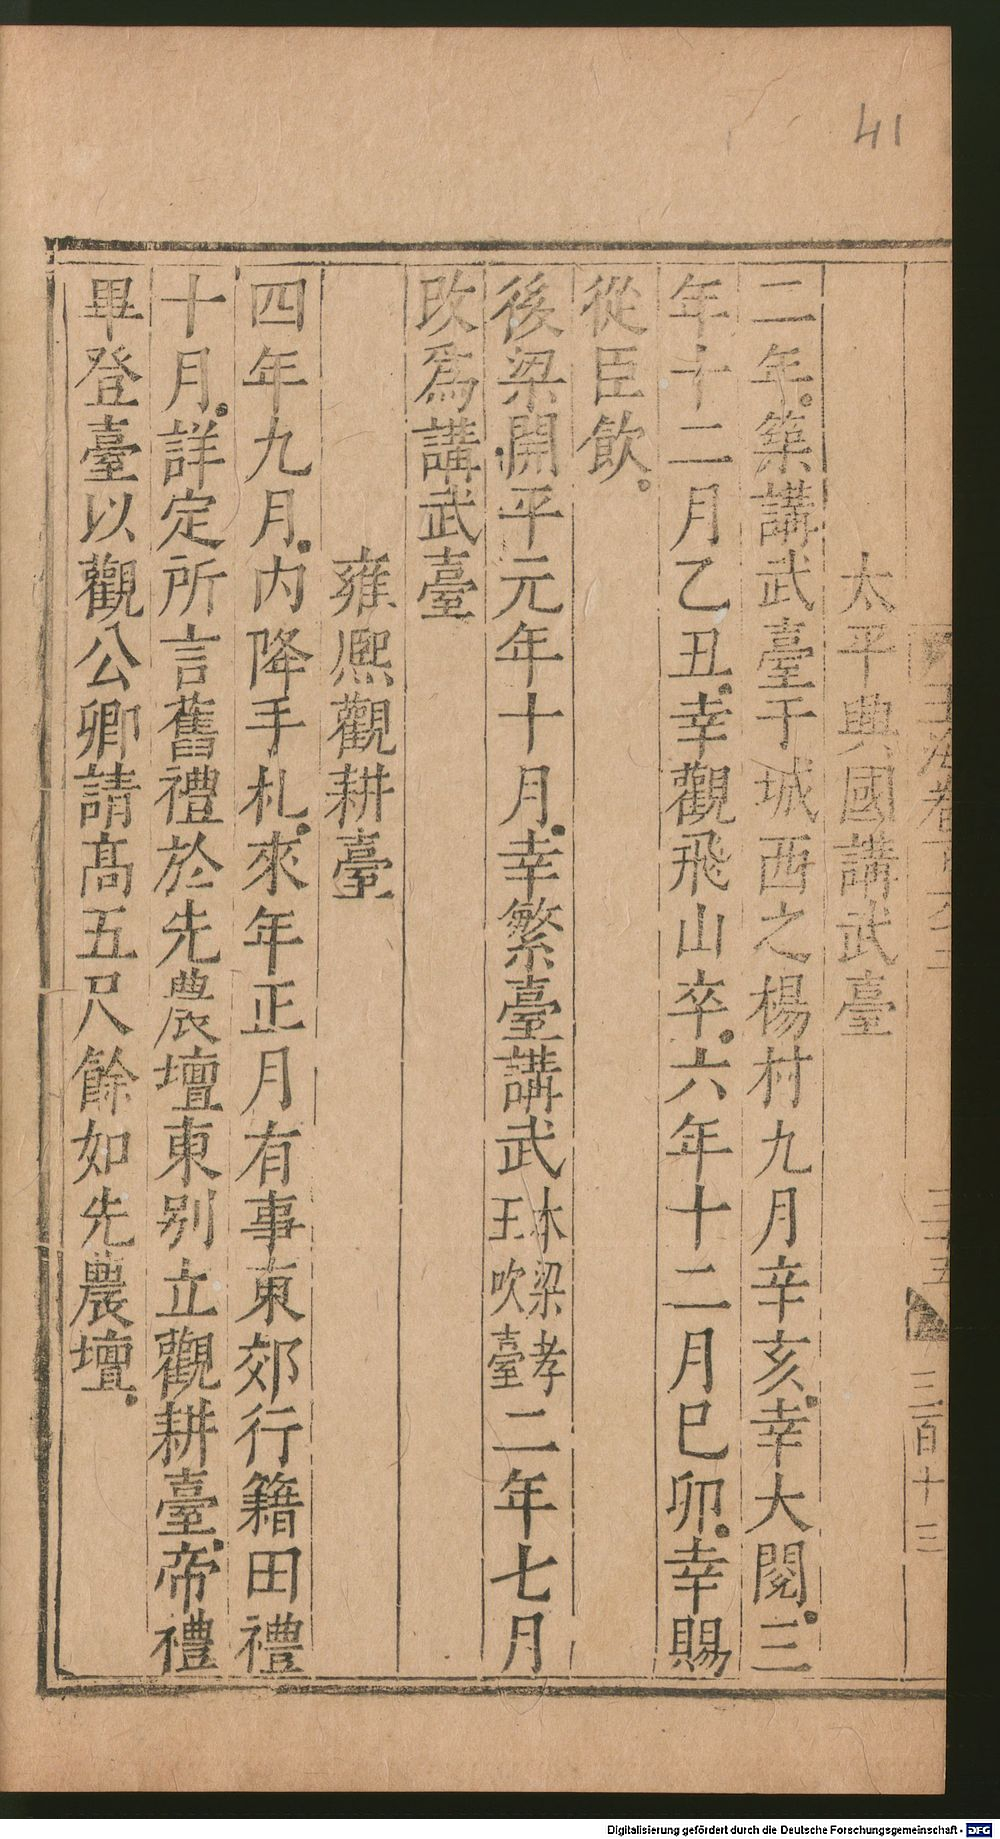 41
太平興國講武臺
二年。築講武臺于城西之楊村九月辛亥。幸大閱。三
年十二月乙丑。幸觀飛山卒。六年十二月巳卯。幸賜
從臣飲。
後梁開平元年十月。幸繁臺講武本梁孝王吹臺二年七月
改爲講武臺
雍熙觀耕臺
四年九月。內降手札。來年正月有事東郊行籍田禮
十月。詳定所言舊禮於先農壇東別立觀耕臺。帝禮
畢登臺以觀公卿請高五尺餘如先農壇。
三百十三
Digitalisierung gefördert durch die Deutsche Forschungsgemeinschaft - DFG